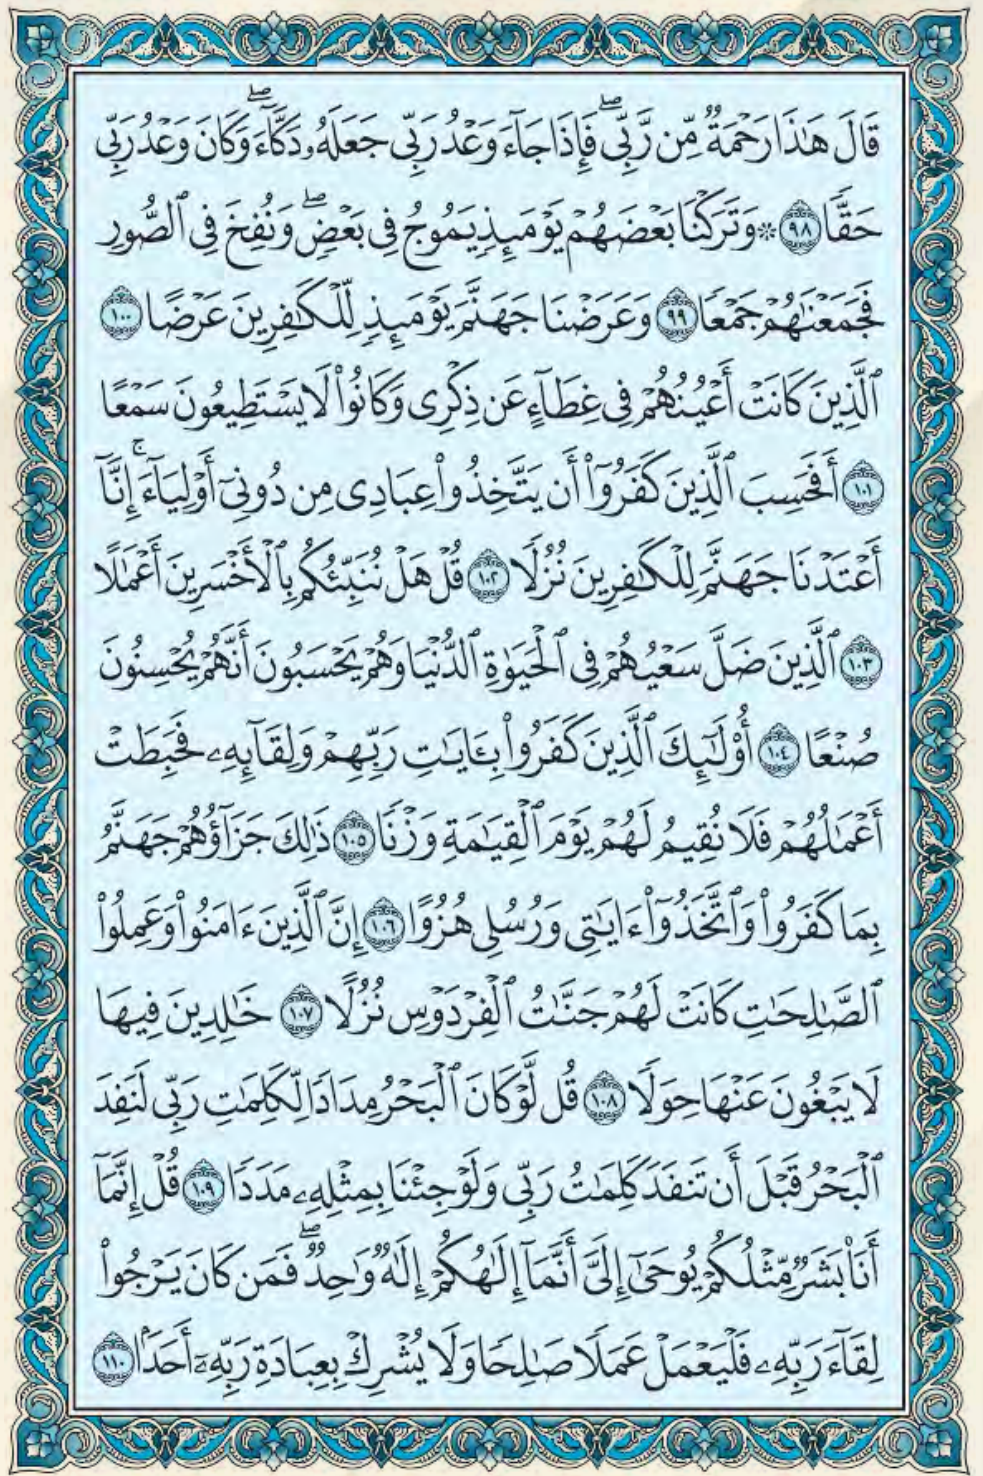 قَالَ هَٰذَا رَحۡمَةٞ مِّن رَّبِّيۖ فَإِذَا جَآءَ وَعۡدُ رَبِّي جَعَلَهُۥ دَكَّآءَۖ وَكَانَ وَعۡدُ رَبِّي
حَقّٗا ٩٨ ۞ وَتَرَكۡنَا بَعۡضَهُمۡ يَوۡمَئِذٖ يَمُوجُ فِي بَعۡضٖۖ وَنُفِخَ فِي ٱلصُّورِ
فَجَمَعۡنَٰهُمۡ جَمۡعٗا ٩٩ وَعَرَضۡنَا جَهَنَّمَ يَوۡمَئِذٖ لِّلۡكَٰفِرِينَ عَرۡضًا ١٠٠
ٱلَّذِينَ كَانَتۡ أَعۡيُنُهُمۡ فِي غِطَآءٍ عَن ذِكۡرِي وَكَانُواْ لَا يَسۡتَطِيعُونَ سَمۡعًا
١٠١ أَفَحَسِبَ ٱلَّذِينَ كَفَرُوٓاْ أَن يَتَّخِذُواْ عِبَادِي مِن دُونِيٓ أَوۡلِيَآءَۚ إِنَّآ
أَعۡتَدۡنَا جَهَنَّمَ لِلۡكَٰفِرِينَ نُزُلٗا ١٠٢ قُلۡ هَلۡ نُنَبِّئُكُم بِٱلۡأَخۡسَرِينَ أَعۡمَٰلًا
١٠٣ ٱلَّذِينَ ضَلَّ سَعۡيُهُمۡ فِي ٱلۡحَيَوٰةِ ٱلدُّنۡيَا وَهُمۡ يَحۡسَبُونَ أَنَّهُمۡ يُحۡسِنُونَ
صُنۡعًا ١٠٤ أُوْلَٰٓئِكَ ٱلَّذِينَ كَفَرُواْ بِـَٔايَٰتِ رَبِّهِمۡ وَلِقَآئِهِۦ فَحَبِطَتۡ
أَعۡمَٰلُهُمۡ فَلَا نُقِيمُ لَهُمۡ يَوۡمَ ٱلۡقِيَٰمَةِ وَزۡنٗا ١٠٥ ذَٰلِكَ جَزَآؤُهُمۡ جَهَنَّمُ
بِمَا كَفَرُواْ وَٱتَّخَذُوٓاْ ءَايَٰتِي وَرُسُلِي هُزُوًا ١٠٦ إِنَّ ٱلَّذِينَ ءَامَنُواْ وَعَمِلُواْ
ٱلصَّٰلِحَٰتِ كَانَتۡ لَهُمۡ جَنَّٰتُ ٱلۡفِرۡدَوۡسِ نُزُلًا ١٠٧ خَٰلِدِينَ فِيهَا
لَا يَبۡغُونَ عَنۡهَا حِوَلٗا ١٠٨ قُل لَّوۡ كَانَ ٱلۡبَحۡرُ مِدَادٗا لِّكَلِمَٰتِ رَبِّي لَنَفِدَ
ٱلۡبَحۡرُ قَبۡلَ أَن تَنفَدَ كَلِمَٰتُ رَبِّي وَلَوۡ جِئۡنَا بِمِثۡلِهِۦ مَدَدٗا ١٠٩ قُلۡ إِنَّمَآ
أَنَا۠ بَشَرٞ مِّثۡلُكُمۡ يُوحَىٰٓ إِلَيَّ أَنَّمَآ إِلَٰهُكُمۡ إِلَٰهٞ وَٰحِدٞۖ فَمَن كَانَ يَرۡجُواْ
لِقَآءَ رَبِّهِۦ فَلۡيَعۡمَلۡ عَمَلٗا صَٰلِحٗا وَلَا يُشۡرِكۡ بِعِبَادَةِ رَبِّهِۦٓ أَحَدَۢا ١١٠